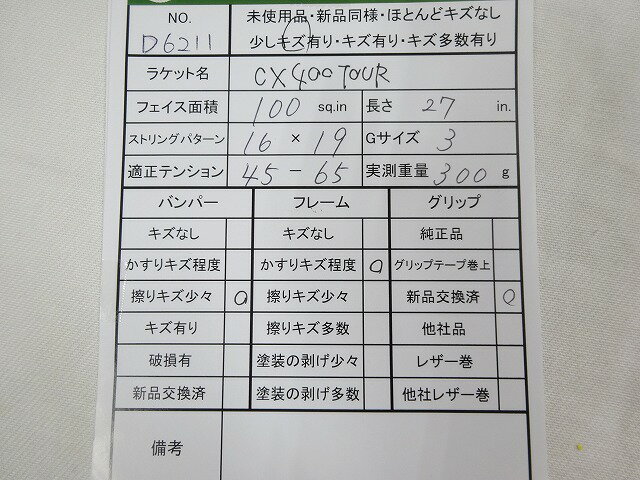 NO. 未使用品・新品同様・ほとんどキズなし
D6211 少しキズ有り・キズ有り・キズ多数有り
ラケット名 CX400TOUR
フェイス面積 100 sq.in 長さ 27 in.
ストリングパターン 16 × 19 Gサイズ 3
適正テンション 45 - 65 実測重量 300 g
バンパー フレーム グリップ
キズなし キズなし 純正品
かすりキズ程度 かすりキズ程度 o グリップテープ巻上
擦りキズ少々 o 擦りキズ少々 新品交換済 o
キズ有り 擦りキズ多数 他社品
破損有 塗装の剥げ少々 レザー巻
新品交換済 塗装の剥げ多数 他社レザー巻
備考